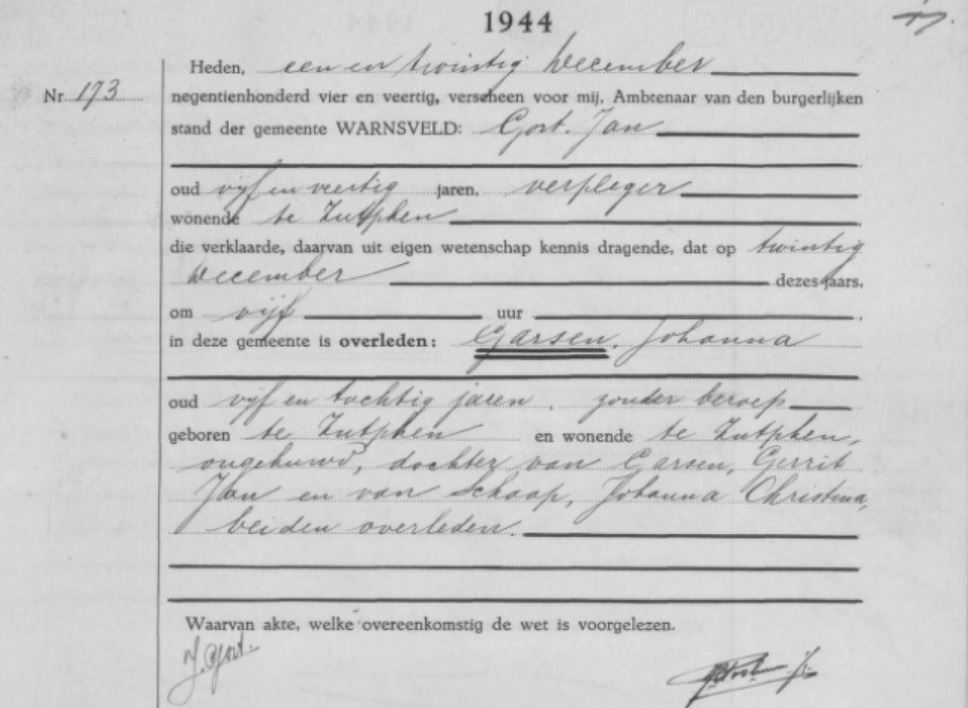 1944
Heden, een en twintig December
Nr 173
negentienhonderd vier en veertig, verscheen voor mij, Ambtenaar van den burgerlijken
stand der gemeente WARNSVELD: Gort. Jan
oud vijf en veertig jaren, verpleger
wonende te Zutphen
die verklaarde, daarvan uit eigen wetenschap kennis dragende, dat op twintig
December dezes jaars,
om vijf uur
in deze gemeente is overleden: Garsen, Johanna
oud vijf en tachtig jaren, zonder beroep
geboren te Zutphen en wonende te Zutphen,
ongehuwd, dochter van Garsen, Gerrit
Jan en van Schaap, Johanna Christina,
beiden overleden.
Waarvan akte, welke overeenkomstig de wet is voorgelezen.
J. Gort.